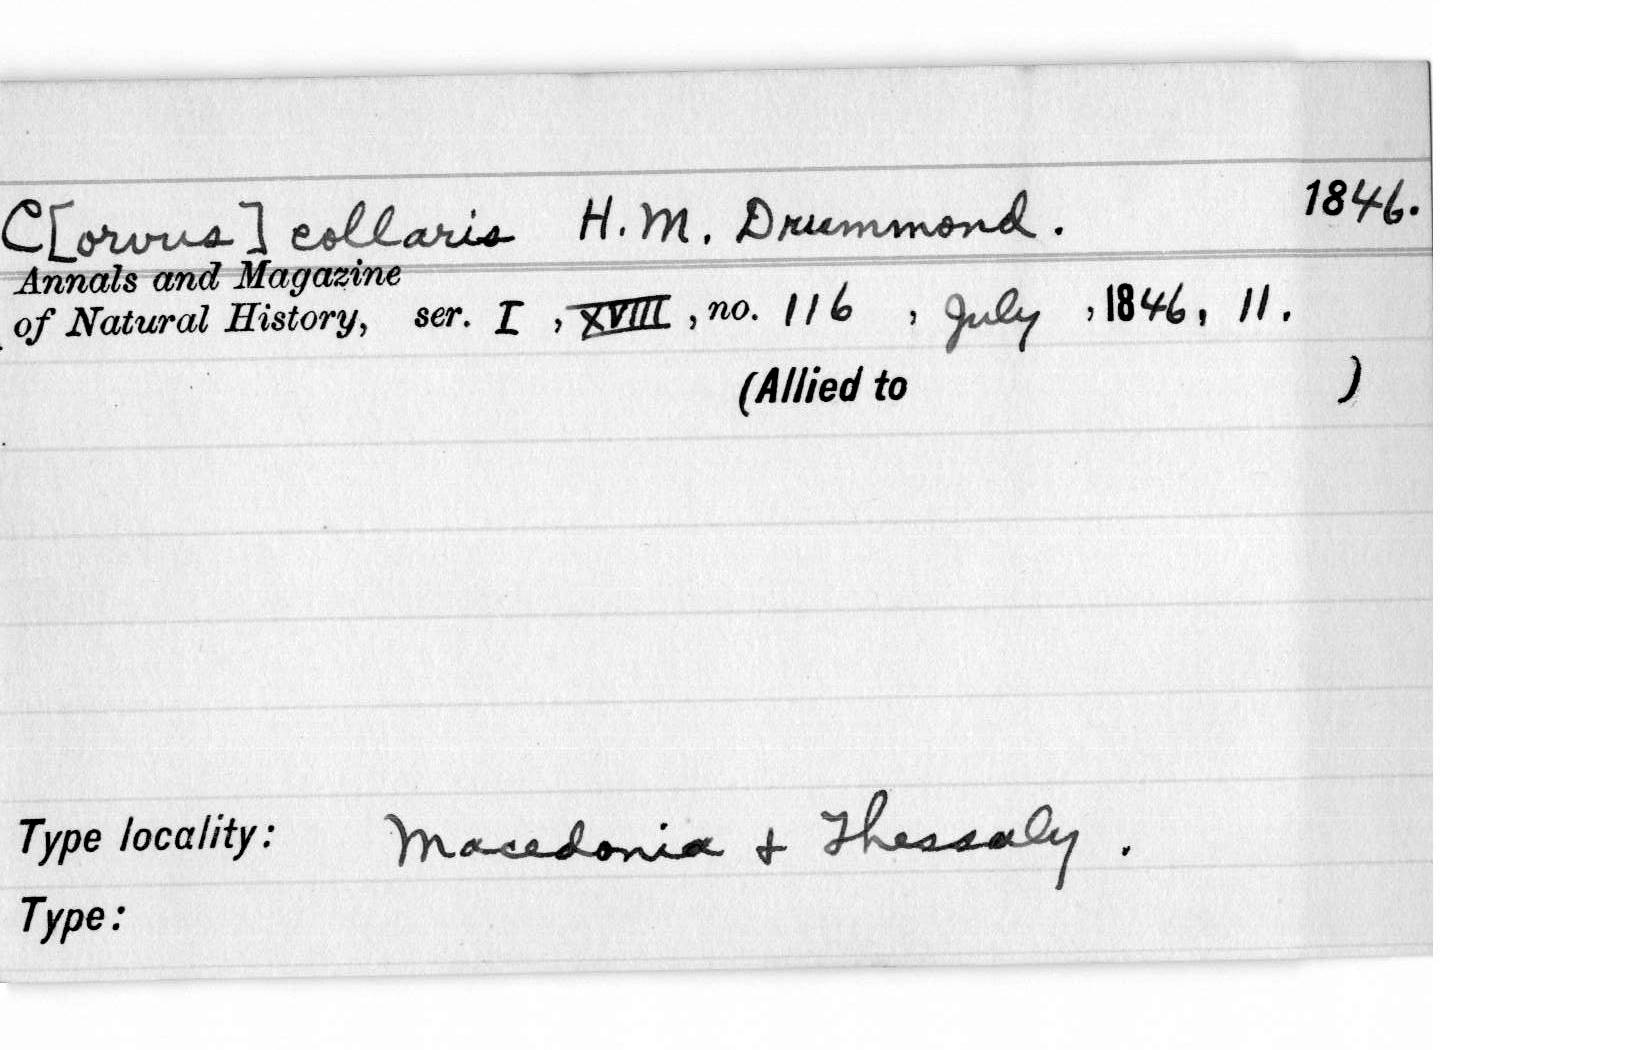 C[orvus] collaris H. M. Drummond. 1846.
Annals and Magazine
of Natural History, ser. I , XVIII , no. 116 , July , 1846, 11.
(Allied to )
Type locality: Macedonia + Thessaly .
Type: